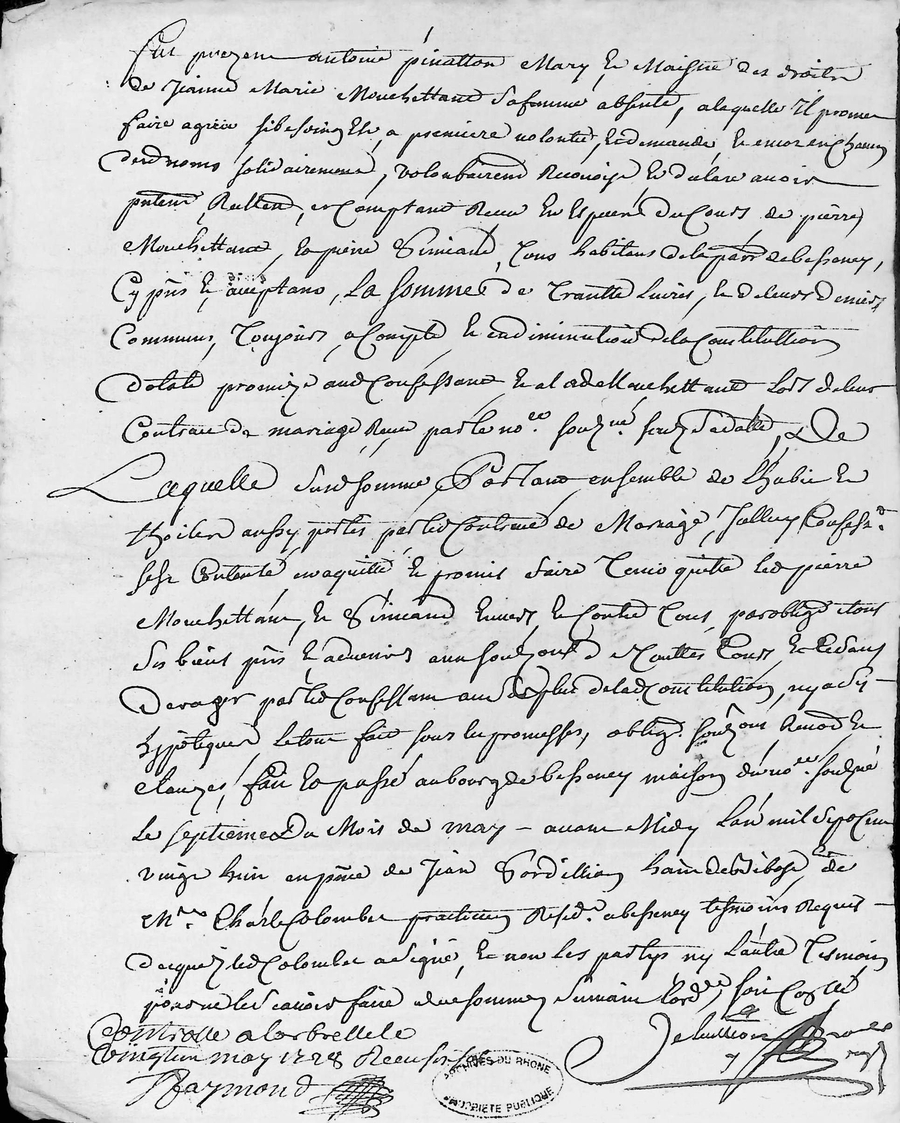 fut present antoine pinatton Mary & Maistre des droits
de Jeanne Marie Mouchettant sa femme absente, a laquelle Il promet
faire agréer si besoin Est, a premiere volonté, & demande, & encor en chacun
desd noms solidairement, volontairem Reconoist & declare avoir
Reellem, & comptant Receu En Especes du Cours de pierre
Mouchettant, & pierre Simeand, Tous habitans de la parr de bessenay,
Cy pnts & aceptans, La somme de Trantte Livres, & de leurs deniers
Communs, Toujours, a Compte & en diminution de la Constitution
dotale promize aud Confessant & a lad Mouchettant Lors de leur
Contrat de mariage Receu par le no.re souz.né sous sa datte, De
Laquelle susd somme, Portant ensemble de L'habit &
aussy portés par led Contrat de Mariage, Confess.t
s'est Contenté en aquitte & promis faire Tenir quitte led pierre
Mouchettant, & Simeand Envers, & Contre Tous, par oblig.on de tous
Ses biens pnts & advenirs aux de touttes Cours, & Sans
Deroger par led Confessant au de plus de lad Constitution, ny a Ses
hypoteques Le tout fait sous les promesses, oblig. Renon.on &
clauzes, fait & passé au bourg de bessenay maison du no.re souz.né
Le septieme du Mois de may - avant Midy L'an mil sept Cent
vingt huit en pnce de Jean hab de de
M.re Charle Colomber praticien Resid.t a bessenay tesmoins Requis -
desquels led Colomber a signé, & non les partyes ny L'autre Tesmoin
pour ne le scavoir faire de ce sommés Suivant L'ord.ce, soit Cont.lé
Controllé a larbrelle le
vingt un may 1728 Receu six s
Raymond
ARCHIVES DU RHONE
PROPRIETE PUBLIQUE